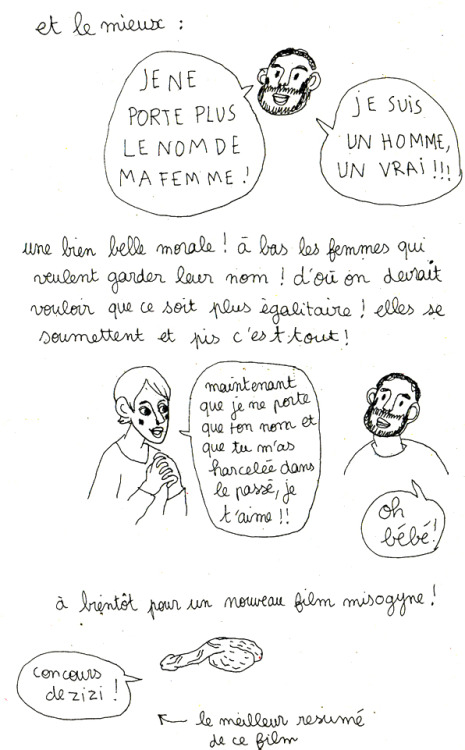 et le mieux :
JE NE
PORTE PLUS
LE NOM DE
MA FEMME !
JE SUIS
UN HOMME,
UN VRAI !!!
une bien belle morale ! à bas les femmes qui
veulent garder leur nom ! d'où on devrait
vouloir que ce soit plus égalitaire ! elles se
soumettent et pis c'est t-tout !
maintenant
que je ne porte
que ton nom et
que tu m'as
harcelée dans
le passé, je
t'aime !!
oh
bébé !
à bientôt pour un nouveau film misogyne !
concours
de zizi !
← le meilleur resumé
de ce film